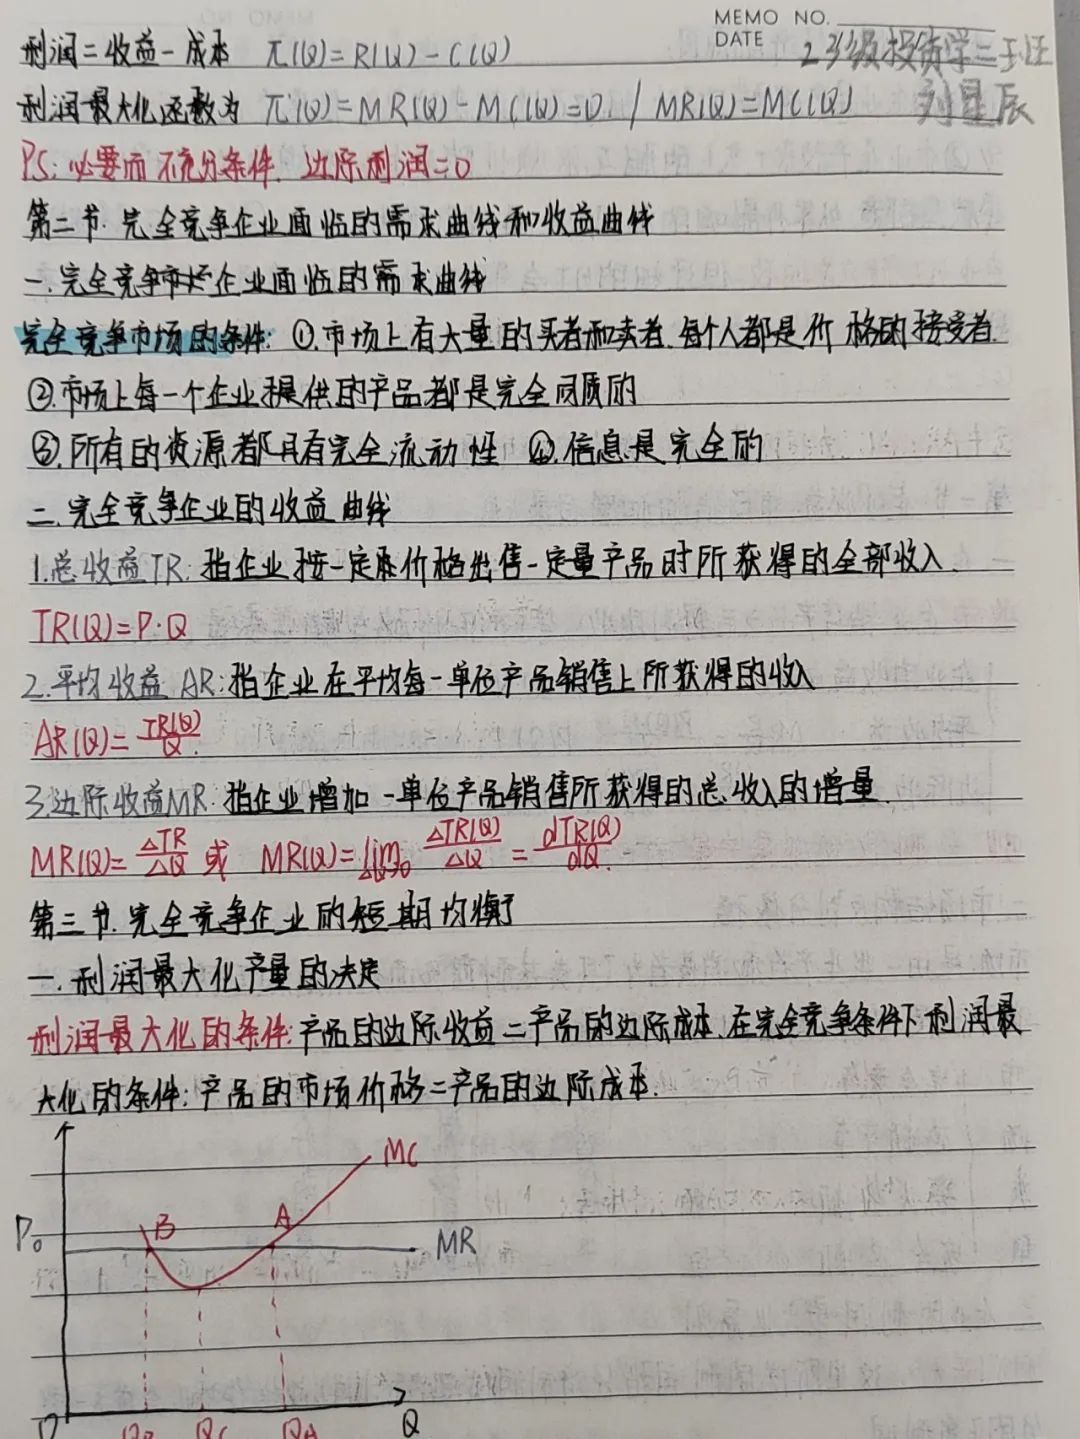 MEMO NO.
DATE
23级投资学二王班
刘星辰
利润=收益-成本 π(Q)=R(Q)-C(Q)
利润最大化函数为 π'(Q)=MR(Q)-MC(Q)=0. / MR(Q)=MC(Q)
PS:必要而不充分条件. 边际利润=0
第二节.完全竞争企业面临的需求曲线和收益曲线
一.完全竞争企业面临的需求曲线
完全竞争市场的条件:①.市场上有大量的买者和卖者.每个人都是价格的接受者.
②.市场上每一个企业提供的产品都是完全同质的
③.所有的资源都具有完全流动性 ④.信息是完全的
二.完全竞争企业的收益曲线
1.总收益TR:指企业按一定价格出售一定量产品时所获得的全部收入.
TR(Q)=P·Q
2.平均收益AR:指企业在平均每一单位产品销售上所获得的收入
AR(Q)=TR(Q)/Q.
3.边际收益MR.指企业增加一单位产品销售所获得的总收入的增量.
MR(Q)=△TR/△Q 或 MR(Q)=lim△Q→0 △TR(Q)/△Q = dTR(Q)/dQ.
第三节.完全竞争企业的短期均衡
一.利润最大化产量的决定
利润最大化的条件:产品的边际收益=产品的边际成本.在完全竞争条件下利润最
大化的条件:产品的市场价格=产品的边际成本.
MC
B
A
P₀
MR
0
QB
QC
QA
Q